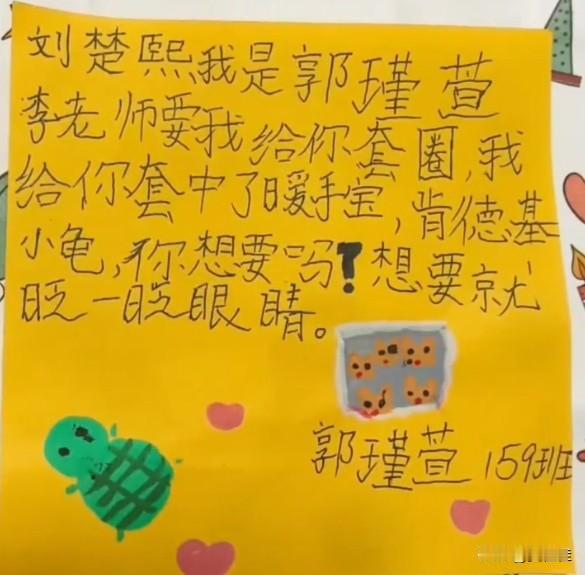 刘楚熙我是郭瑾萱
李老师要我给你套圈,我
给你套中了暖手宝,肯德基
小龟,你想要吗?想要就
眨一眨眼睛。
郭瑾萱 159班